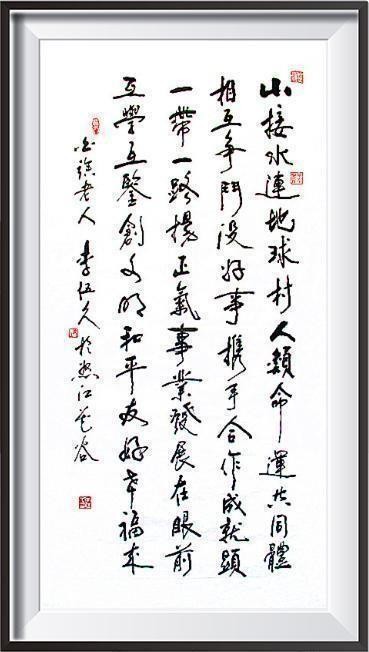 山接水連地球村人類命運共同體
相互爭鬥没好事携手合作成就顯
一帶一路揚正氣事業發展在眼前
互學互鑒創文明和平友好幸福來
白族老人 李伍久 於怒江谷